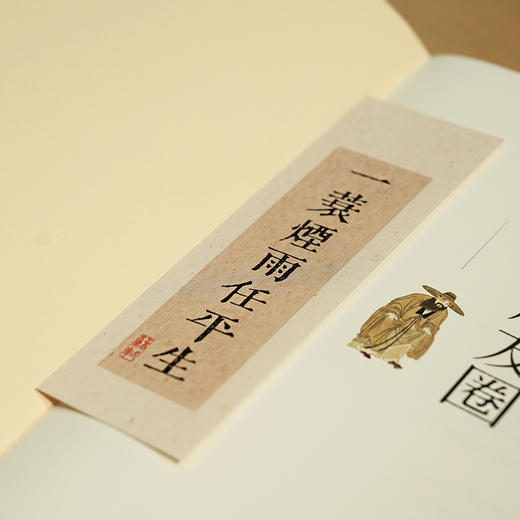 一蓑煙雨任平生
友圈